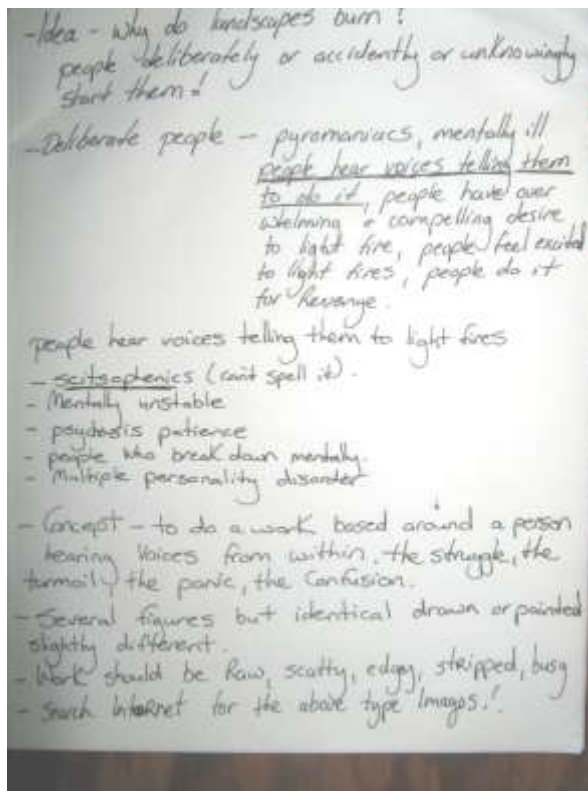 - Idea - why do landscapes burn?
people deliberately or accidently or unknowingly
start them!
- Deliberate people - pyromaniacs, mentally ill
people hear voices telling them
to do it, people have over
whelming & compelling desire
to light fire, people feel excited
to light fires, people do it
for Revenge.
people hear voices telling them to light fires
- scitsophenics (can't spell it).
- Mentally unstable
- psychosis patience
- people who break down mentally.
- Multiple personality disorder
- Concept - to do a work based around a person
hearing Voices from within, the struggle, the
turmoil, the panic, the Confusion.
- Several figures but identical drawn or painted
slightly different.
- Work should be Raw, scatty, edgey, stripped, busy
- Search InteRnet for the above type Images!